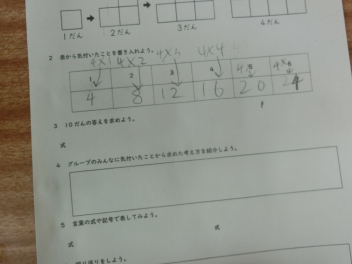 1だん 2だん 3だん 4だん
2 表から気付いたことを書き入れよう。
4×1 4×2 4×3 4×4
1 2 3 4 4×5 4×6
4 8 12 16 20 24
3 10だんの答えを求めよう。
式
4 グループのみんなに気付いたことから求めた考え方を紹介しよう。
5 言葉の式や記号で表してみよう。
式 式